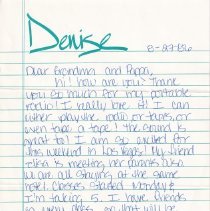 Denise
8-27-86
Dear Grandma and Pappa,
Hi! how are you? Thank
you so much for my portable
radio! I really love it! I can
either play the radio or tapes, or
even tape a tape! The sound is
great too! I am so excited for
this weekend in Las Vegas! My friend
is meeting her parents also
we are all staying at the same
hotel. Classes started Monday &
I'm taking 5. I have friends
in every class, so that will be